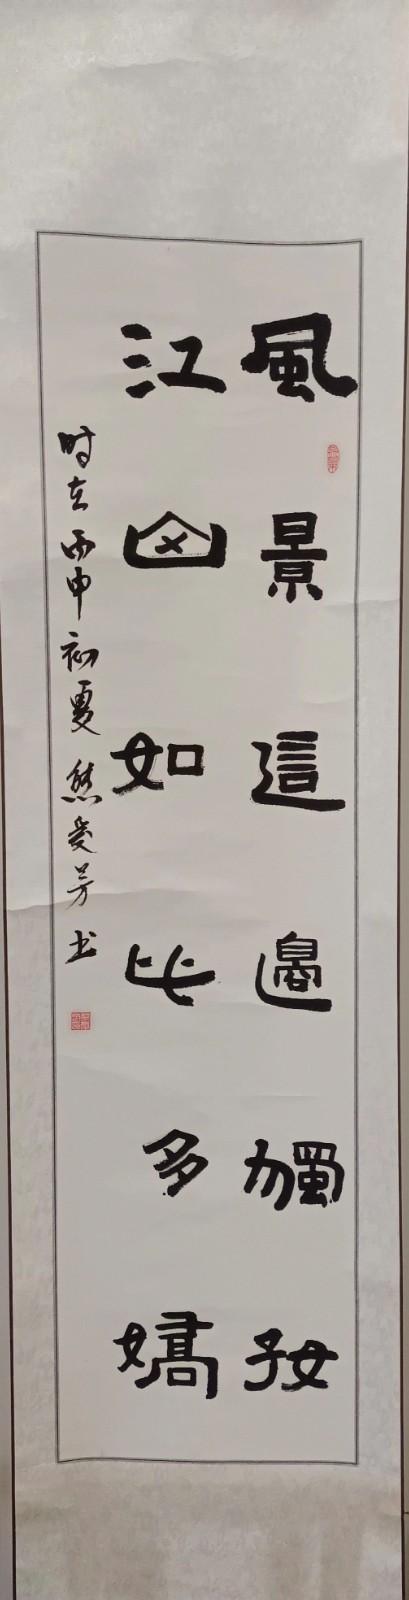 風景這邊獨好
江山如此多嬌
时在丙申初夏熊爱芳书